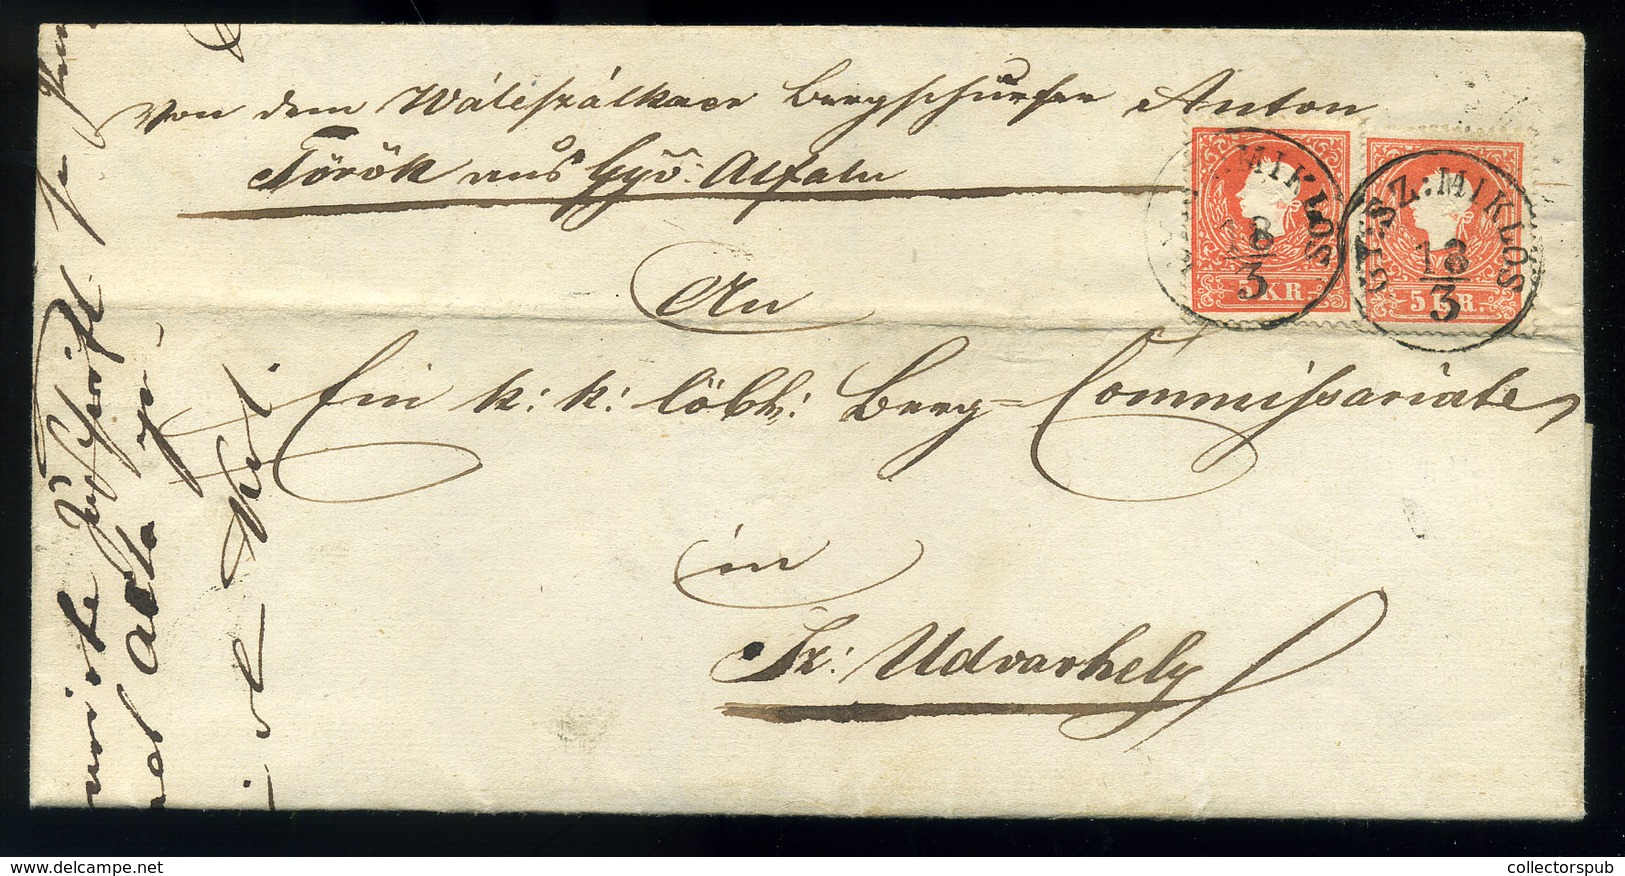 Von dem Wáleszálkaer Bergschürfer Anton
Török aus Gyö: Alfalu
An
Ein k: k: löbh: Berg-Commissariate,
in
Sz: Udvarhely
MIKLOS
18
3
5 KR.
GY: SZ: MIKLOS
18
3
5 KR.
collectorspub